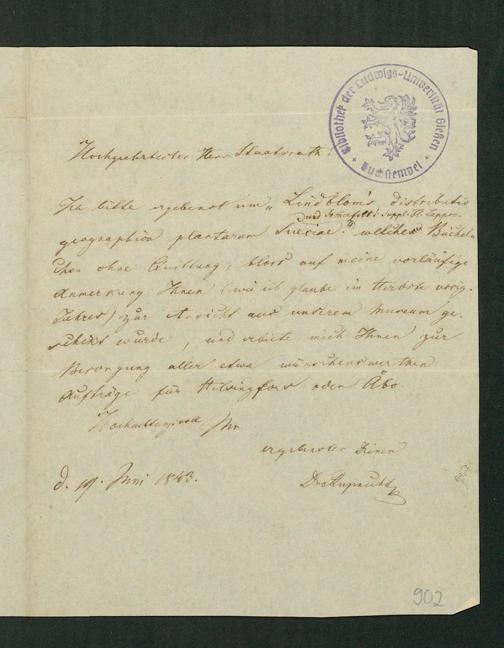 Bibliothek der Ludwigs-Universität Gießen
Buchstempel
Hochgeehrtester Herr Staatsrath!
Ich bitte ergebenst um „Lindblom's distributio
und Sommerfelt's Suppl. Fl. Lappon.
geographica plantarum Sueciae" welches Büchel-
chen ohne Quittung, bloss auf meine vorläufige
Anmerkung Ihnen (wie ich glaube im Herbste vorig.
Jahres) zur Ansicht aus unserem Museum ge-
schickt wurde, und erbiete mich Ihnen zur
Besorgung aller etwa wünschenswerthen
Aufträge für Helsingfors oder Åbo.
Hochachtungsvoll Ihr
ergebenster Diener
d. 19. Juni 1843.
Dr Ruprecht
902